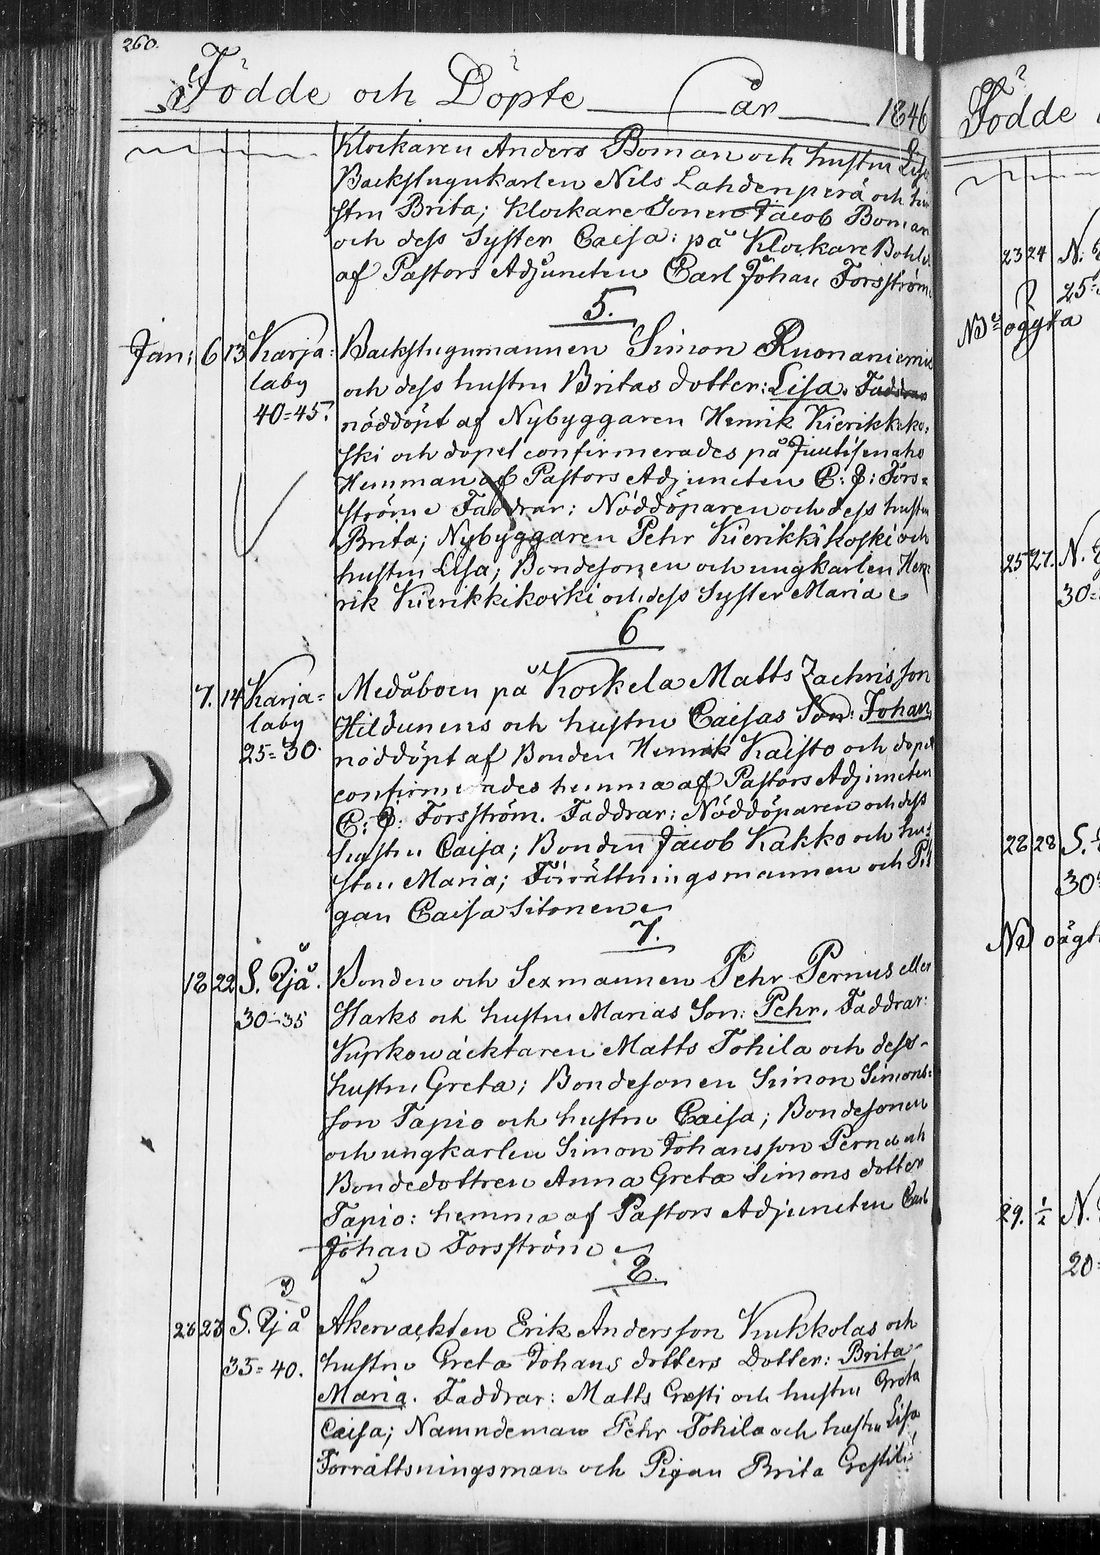 260.
Födde och Döpte år 1846
Klockaren Anders Boman och hustru Lisa
Backstugukarlen Nils Lahdenperä och hu
stru Brita; Klockare Sonen Jacob Boman
och dess Syster Caisa: på Klockare Bohlet
af Pastors Adjuncten Carl Johan Forsström.
5.
Jan: 6 13 Karja: Backstugumannen Simon Ruonaniemis
laby och dess hustru Britas dotter: Lisa. Faddrar
40=45. nöddöpt af Nybyggaren Henrik Kierikkiko,
ski och döpet confirmerades på Juutisenaho
Hemman af Pastors Adjuncten C: J: Fors=
ström. Faddrar: Nöddöparen och dess hustru
Brita; Nybyggaren Pehr Kierikkikoski och
hustru Lisa; Bondesonen och ungkarlen Hen
rik Kierikkikoski och dess Syster Maria
6
7. 14 Karja= Medåboen på Koskela Matts Zachrisson
laby Hildunens och hustru Caisas Son: Johan
25=30. nöddöpt af Bonden Henrik Kaisto och döpet
confirmerades hemma af Pastors Adjuncten
C: J: Forsström. Faddrar: Nöddöparen och dess
hustru Caisa; Bonden Jacob Kakko och hu=
stru Maria; Förrättningsmannen och Pi
gan Caisa Sitonen
7.
18 22 S. Ijå. Bonden och Sexmannen Pehr Pernus eller
30-35 Harks och hustru Marias Son: Pehr. Faddrar:
Matts Tohila och dess
hustru Greta; Bondesonen Simon Simons=
son Tapio och hustru Caisa; Bondesonen
och ungkarlen Simon Johansson Pernu och
Bondedottren Anna Greta Simons dotter
Tapio: hemma af Pastors Adjuncten Carl
Johan Forsström
8.
23 S. Ijå Åkervackten Erik Andersson Kukkolas och
35=40. hustru Greta Johans dotters Dotter: Brita
Maria. Faddrar: Matts Cresti och hustru Greta
Caisa; Namndeman Pehr Tohila och hustru Lisa
Förrättsningsman och Pigan Brita
Födde
23 24 N.
25=
NB
25 27. N.
30=
28 28 S.
30
29. ½ N.
20=